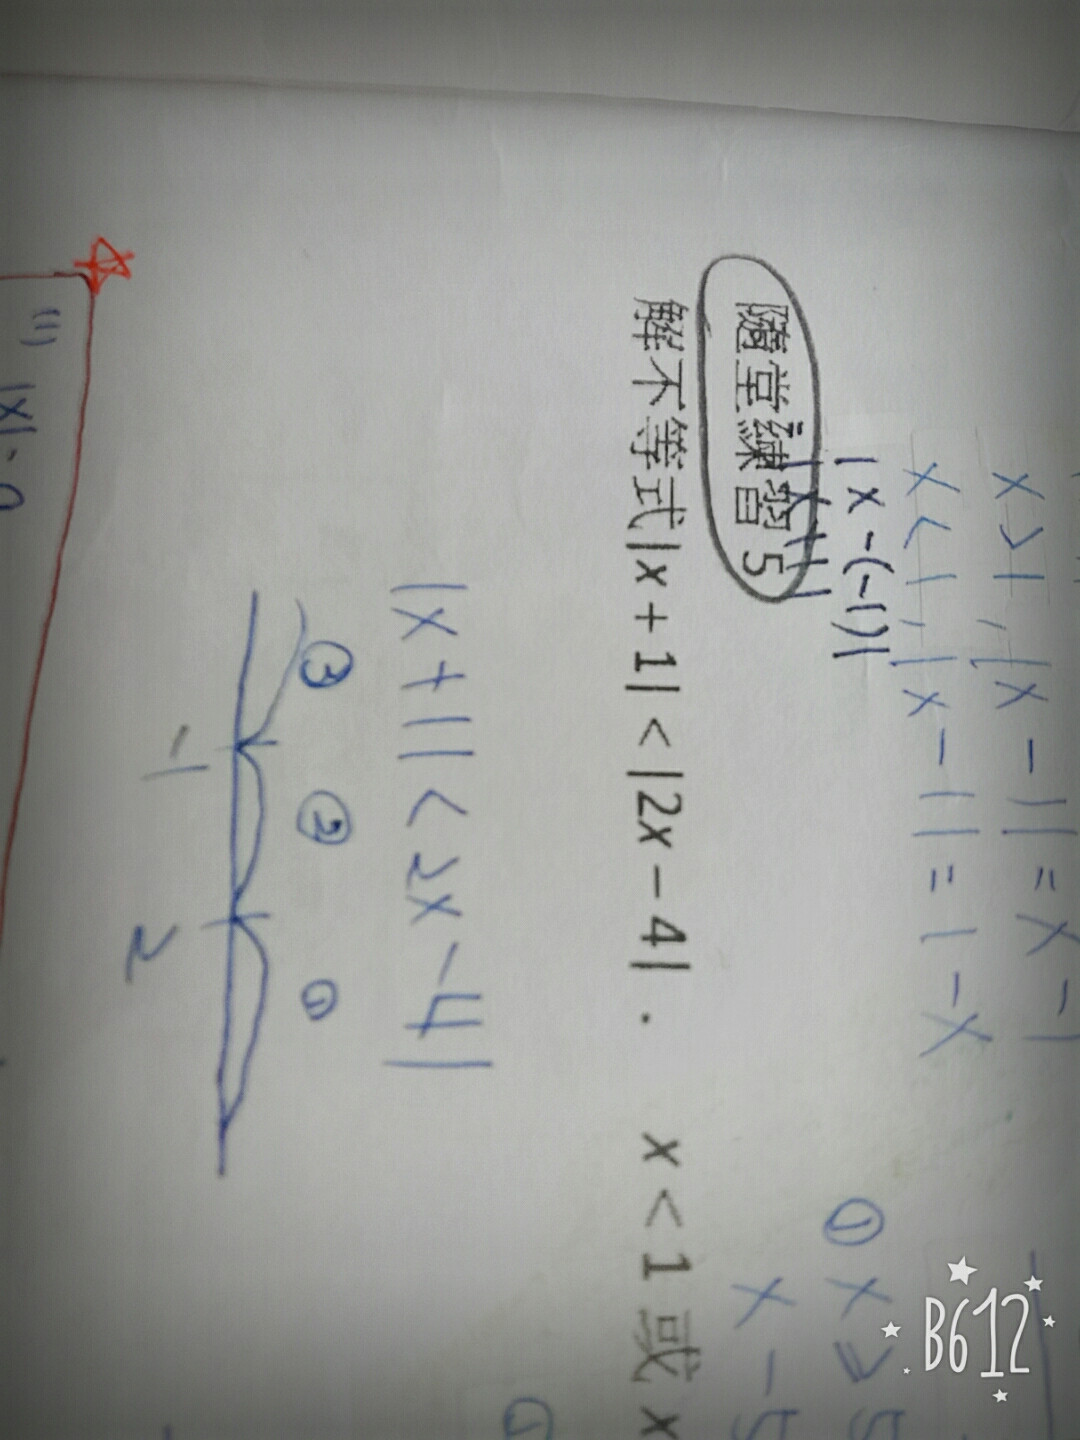 x>1, |x-1|=x-1
x<1, |x-1|=1-x
|x-(-1)|
|x+1|
隨堂練習 5
解不等式|x+1|<|2x-4|. x<1 或 x
① x≥5
x-5
|x+1|<2x-4|
③ ② ①
-1 2
(1) |x|
B612